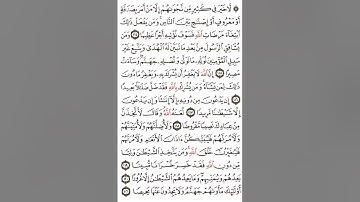 ۞ لَّا خَيْرَ فِي كَثِيرٍ مِّن نَّجْوَىٰهُمْ إِلَّا مَنْ أَمَرَ بِصَدَقَةٍ
أَوْ مَعْرُوفٍ أَوْ إِصْلَٰحٍۭ بَيْنَ ٱلنَّاسِ وَمَن يَفْعَلْ ذَٰلِكَ
ٱبْتِغَآءَ مَرْضَاتِ ٱللَّهِ فَسَوْفَ نُؤْتِيهِ أَجْرًا عَظِيمًا ١١٤ وَمَن
يُشَاقِقِ ٱلرَّسُولَ مِنۢ بَعْدِ مَا تَبَيَّنَ لَهُ ٱلْهُدَىٰ وَيَتَّبِعْ غَيْرَ
سَبِيلِ ٱلْمُؤْمِنِينَ نُوَلِّهِۦ مَا تَوَلَّىٰ وَنُصْلِهِۦ جَهَنَّمَ وَسَآءَتْ
مَصِيرًا ١١٥ إِنَّ ٱللَّهَ لَا يَغْفِرُ أَن يُشْرَكَ بِهِۦ وَيَغْفِرُ مَا دُونَ
ذَٰلِكَ لِمَن يَشَآءُ وَمَن يُشْرِكْ بِٱللَّهِ فَقَدْ ضَلَّ ضَلَٰلًۢا بَعِيدًا
١١٦ إِن يَدْعُونَ مِن دُونِهِۦٓ إِلَّآ إِنَٰثًا وَإِن يَدْعُونَ
إِلَّا شَيْطَٰنًا مَّرِيدًا ١١٧ لَّعَنَهُ ٱللَّهُ وَقَالَ لَأَتَّخِذَنَّ
مِنْ عِبَادِكَ نَصِيبًا مَّفْرُوضًا ١١٨ وَلَأُضِلَّنَّهُمْ وَلَأُمَنِّيَنَّهُمْ
وَلَءَامُرَنَّهُمْ فَلَيُبَتِّكُنَّ ءَاذَانَ ٱلْأَنْعَٰمِ وَلَءَامُرَنَّهُمْ
فَلَيُغَيِّرُنَّ خَلْقَ ٱللَّهِ وَمَن يَتَّخِذِ ٱلشَّيْطَٰنَ وَلِيًّا
مِّن دُونِ ٱللَّهِ فَقَدْ خَسِرَ خُسْرَانًا مُّبِينًا ١١٩
يَعِدُهُمْ وَيُمَنِّيهِمْ وَمَا يَعِدُهُمُ ٱلشَّيْطَٰنُ إِلَّا غُرُورًا ١٢٠
أُو۟لَٰٓئِكَ مَأْوَىٰهُمْ جَهَنَّمُ وَلَا يَجِدُونَ عَنْهَا مَحِيصًا ١٢١